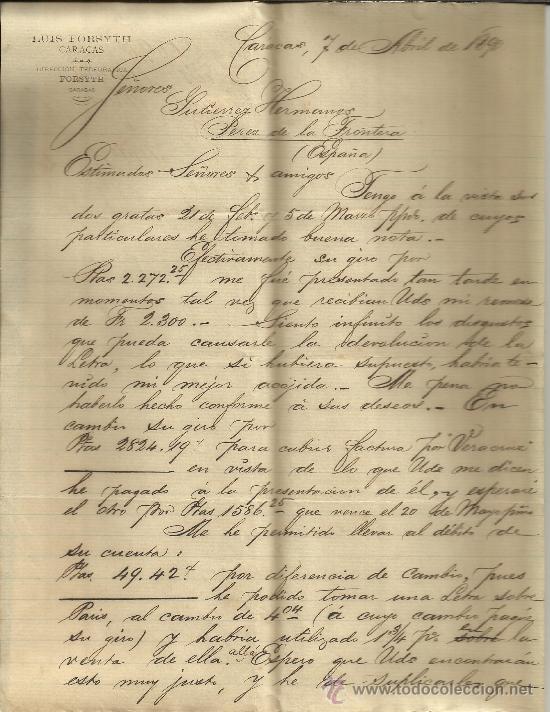 LUIS FORSYTH
CARACAS
DIRECCION TELEGRAFICA
FORSYTH
CARACAS
Caracas, 7 de Abril de 189
Señores
Gutierrez Hermanos
Jerez de la Frontera
(España)
Estimados Señores y amigos
Tengo á la vista sus
dos gratas 21 de Feb. y 5 de Marzo ppdo. de cuyos
particulares he tomado buena nota.-
Efectivamente su giro por
Ptas 2.272.25 me fué presentado tan tarde en
momentos tal vez que recibian Uds mi remesa
de Fr 2.300.- Siento infinito los disgustos
que pueda causarle la devolucion de la
Letra, lo que si hubiera supuesto, habria te-
nido mi mejor acojida.- Me pena no
haberlo hecho conforme á sus deseos.- En
cambio su giro por
Ptas 2824.19 para cubrir factura por "Veracruz"
en vista de lo que Uds me dicen
he pagado á la presentacion de él, y esperaré
el otro por Ptas 1586.25 que vence el 20 de Mayo
Me he permitido llevar al débito de
su cuenta:
Ptas. 49.42 por diferencia de cambio, pues
he podido tomar una Letra sobre
Paris, al cambio de 4.04 (á cuyo cambio pagué
su giro) y habria utilizado 1 3/4 p% la
venta de ella allá. Espero que Uds encontrarán
esto muy justo, y he de suplicarles que
www.todocoleccion.net